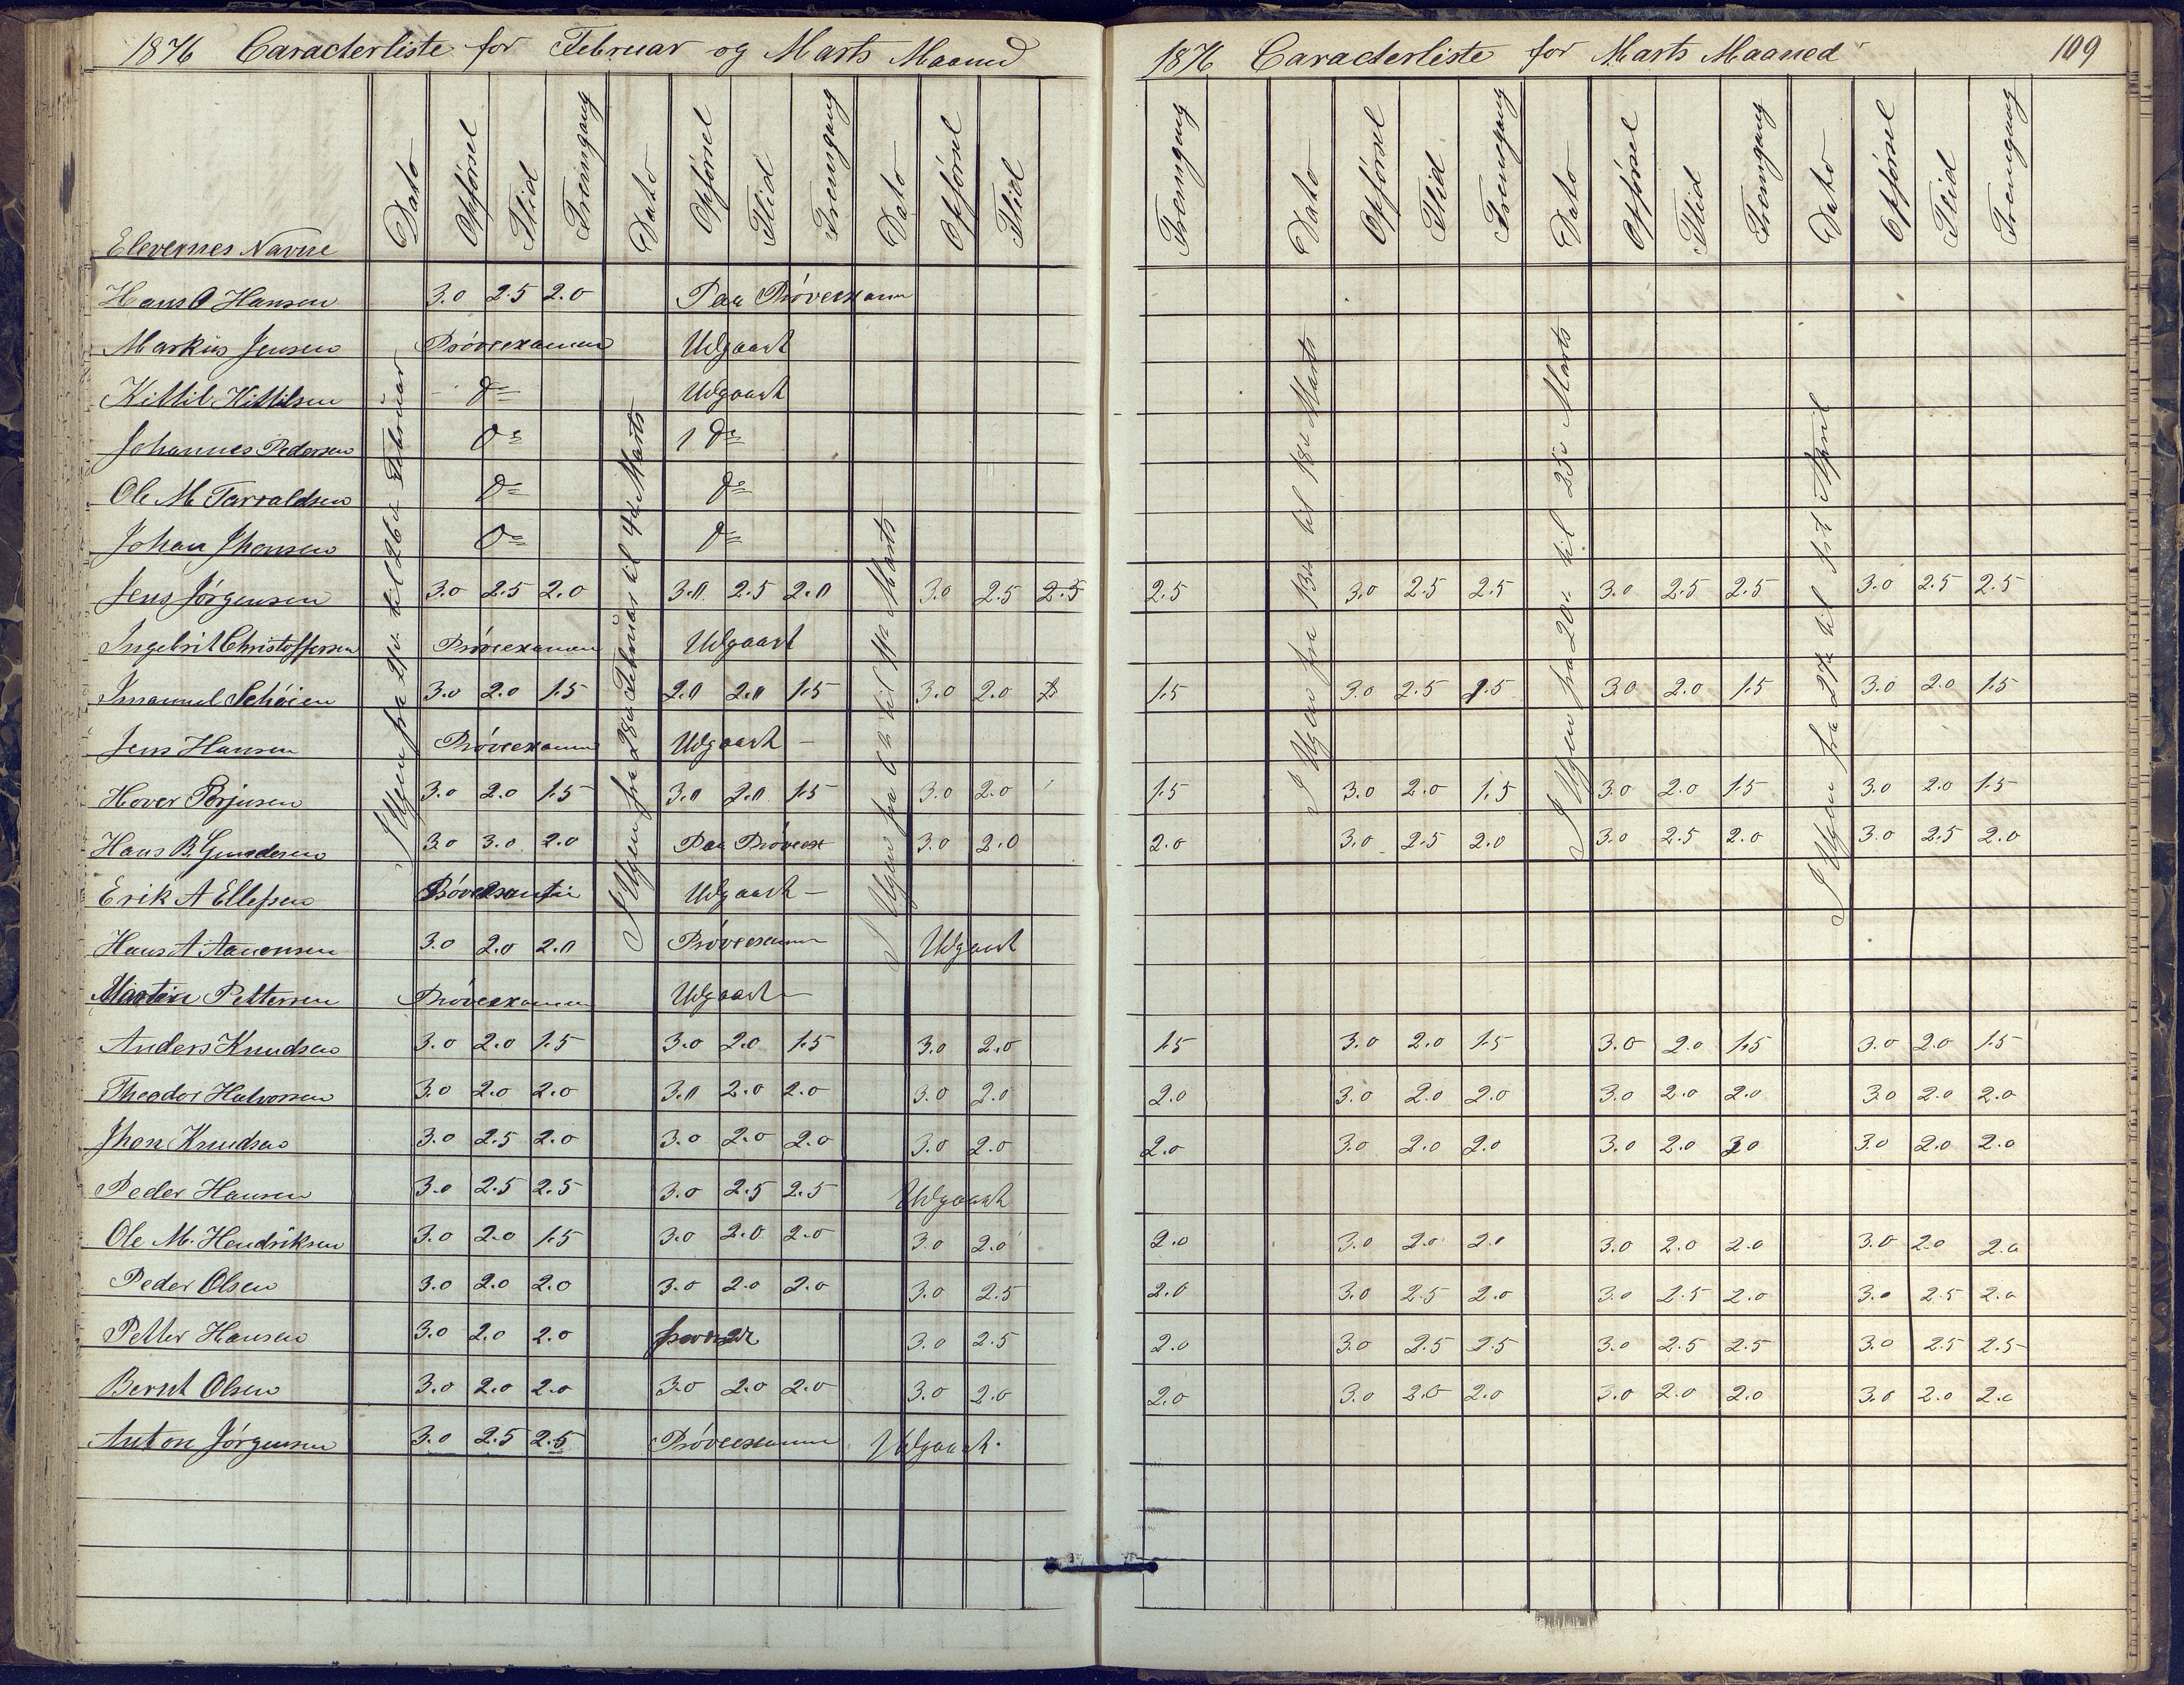 1876 Caracterliste for Februar og Marts Maaned
Elevernes Navne Dato Opførsel Flid Fremgang Dato Opførsel Flid Fremgang Dato Opførsel Flid
I Ugen fra til 26de Februar
I Ugen fra 28de Februar til 4de Marts
I Ugen fra 6te til 11te Marts
Hans O Hansen 3.0 2.5 2.0 Paa Prøveexamen
Markus Jensen Prøveexamen Udgaaet
Kittil Kittilsen do Udgaaet
Johannes Pedersen do do
Ole M Tarraldsen do do
Johan Jhonsen do do
Jens Jørgensen 3.0 2.5 2.0 3.0 2.5 2.0 3.0 2.5 2.5
Ingebrit Christoffersen Prøveexamen Udgaaet
Imanuel Schøien 3.0 2.0 1.5 2.0 2.0 1.5 3.0 2.0
Jens Hansen Prøveexamen Udgaaet –
Hover Torjusen 3.0 2.0 1.5 3.0 2.0 1.5 3.0 2.0
Hans B. Gundersen 3.0 3.0 2.0 Paa Prøveex 3.0 2.0
Erik A Ellefsen Prøveexamen Udgaaet –
Hans A Aanonsen 3.0 2.0 2.0 Prøveexamen Udgaaet
Martin Pettersen Prøveexamen Udgaaet –
Anders Knudsen 3.0 2.0 1.5 3.0 2.0 1.5 3.0 2.0
Theodor Halvorsen 3.0 2.0 2.0 3.0 2.0 2.0 3.0 2.0
Jhon Knudsen 3.0 2.5 2.0 3.0 2.0 2.0 3.0 2.0
Peder Hansen 3.0 2.5 2.5 3.0 2.5 2.5 Udgaaet
Ole M. Hendriksen 3.0 2.0 1.5 3.0 2.0 2.0 3.0 2.0
Peder Olsen 3.0 2.0 2.0 3.0 2.0 2.0 3.0 2.5
Petter Hansen 3.0 2.0 2.0 3.0 2.5
Bernt Olsen 3.0 2.0 2.0 3.0 2.0 2.0 3.0 2.0
Anton Jørgensen 3.0 2.5 2.5 Prøveexamen Udgaaet.
1876 Caracterliste for Marts Maaned 109
Fremgang Dato Opførsel Flid Fremgang Dato Opførsel Flid Fremgang Dato Opførsel Flid Fremgang
I Ugen fra 13de til 18de Marts
I Ugen fra 20de til 25de Marts
I Ugen fra 27de til 1ste April
2.5 3.0 2.5 2.5 3.0 2.5 2.5 3.0 2.5 2.5
1.5 3.0 2.5 1.5 3.0 2.0 1.5 3.0 2.0 1.5
1.5 3.0 2.0 1.5 3.0 2.0 1.5 3.0 2.0 1.5
2.0 3.0 2.5 2.0 3.0 2.5 2.0 3.0 2.5 2.0
1.5 3.0 2.0 1.5 3.0 2.0 1.5 3.0 2.0 1.5
2.0 3.0 2.0 2.0 3.0 2.0 2.0 3.0 2.0 2.0
2.0 3.0 2.0 2.0 3.0 2.0 2.0 3.0 2.0 2.0
2.0 3.0 2.0 2.0 3.0 2.0 2.0 3.0 2.0 2.0
2.0 3.0 2.5 2.0 3.0 2.5 2.0 3.0 2.5 2.0
2.0 3.0 2.5 2.5 3.0 2.5 2.5 3.0 2.5 2.5
2.0 3.0 2.0 2.0 3.0 2.0 2.0 3.0 2.0 2.0